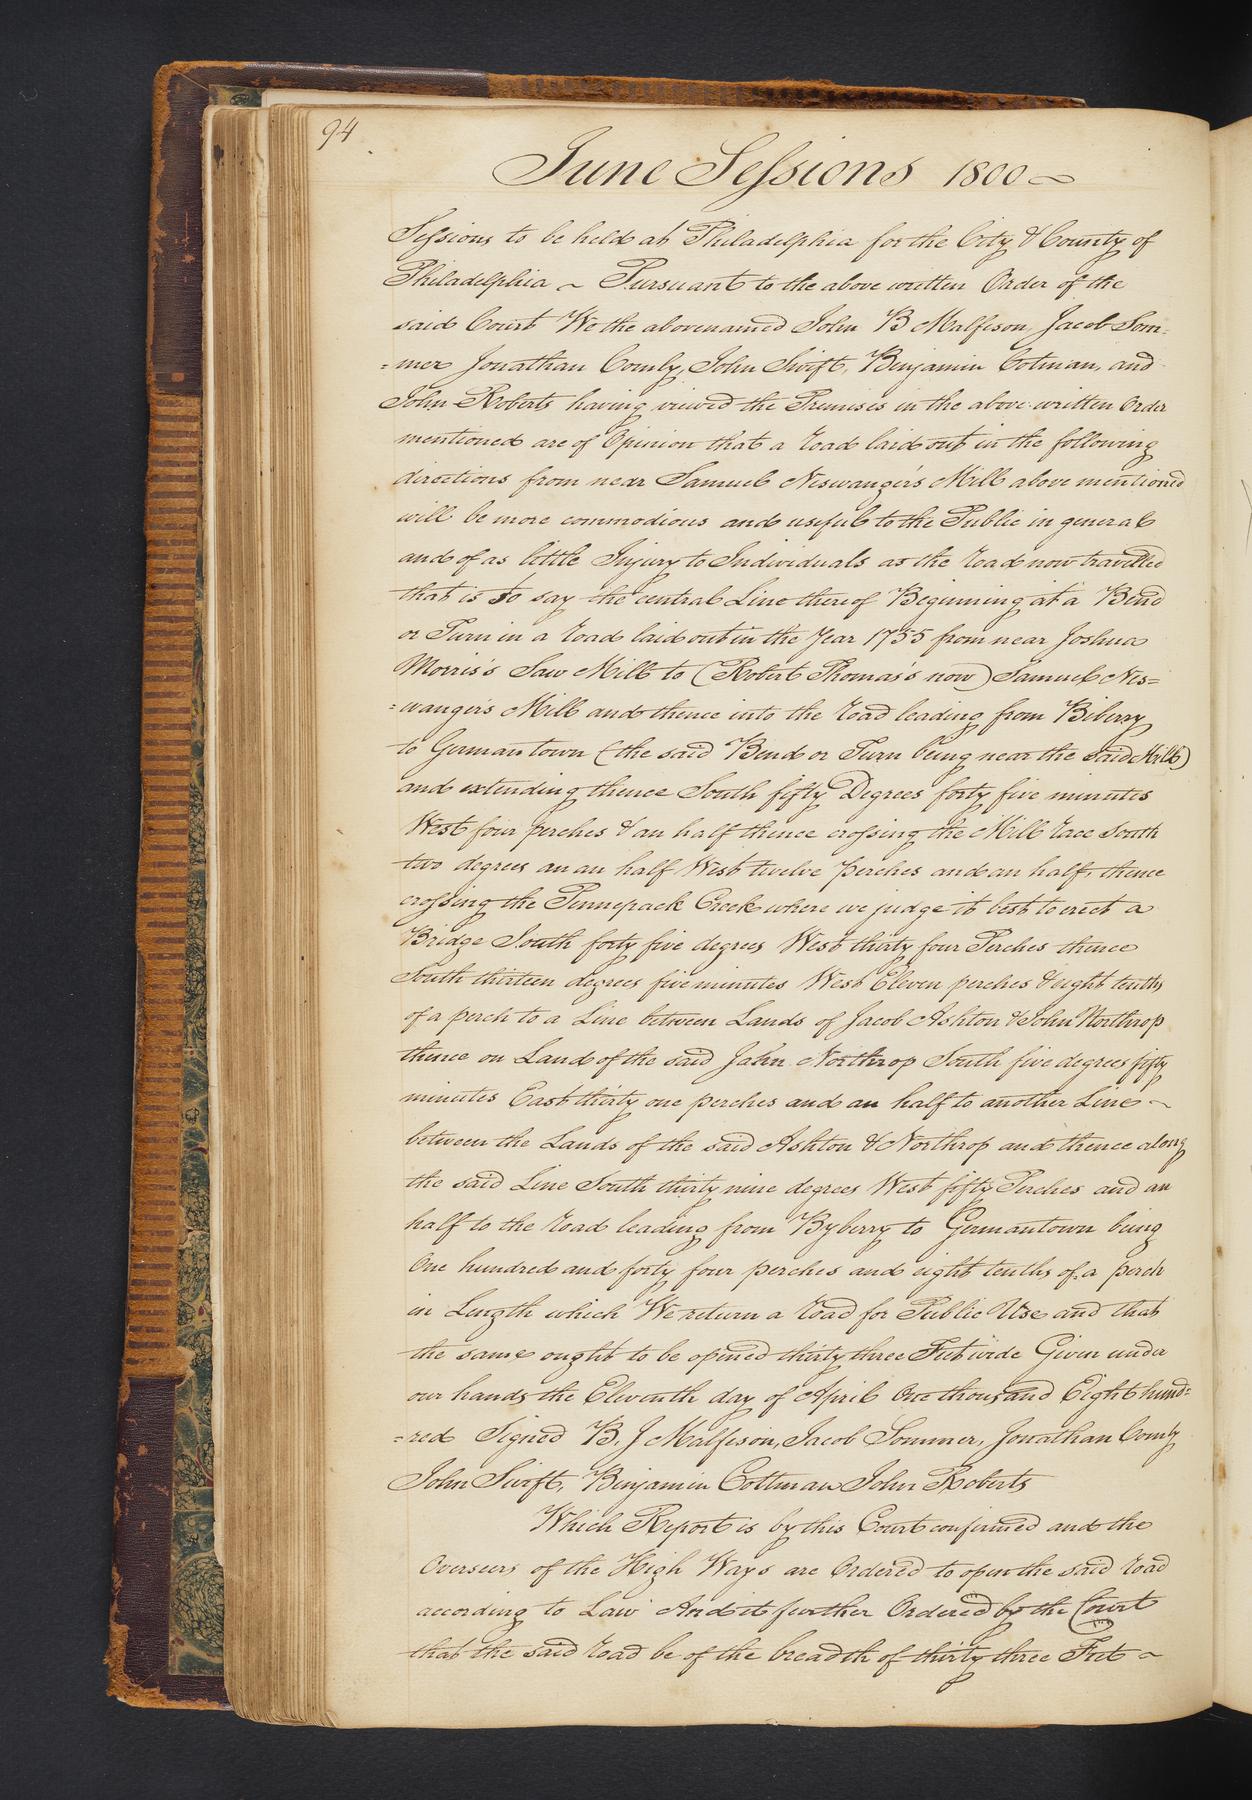 94
June Sessions 1800
Sessions to be held at Philadelphia for the City & County of
Philadelphia ~ Pursuant to the above written Order of the
said Court We the abovenamed John B Malfeson, Jacob Som-
=mer Jonathan Comly, John Swift, Benjamin Cotman, and
John Roberts having viewed the Premises in the above written Order
mentioned are of Opinion that a road laid out in the following
directions from near Samuel Neswanger's Mill above mentioned
will be more commodious and useful to the Public in general
and of as little Injury to Individuals as the road now travelled
that is to say the central Line thereof Beginning at a Bend
or Turn in a road laid out in the Year 1755 from near Joshua
Morris's Saw Mill to (Robert Thomas's now) Samuel Nes=
=wanger's Mill and thence into the road leading from Biberry
to Germantown (the said Bend or Turn being near the said Mill)
and extending thence South fifty Degrees forty five minutes
West four perches & an half thence crossing the Mill race South
two degrees an an half West twelve perches and an half, thence
crossing the Pennepack Creek where we judge it best to erect a
Bridge South forty five degrees West thirty four Perches thence
South thirteen degrees five minutes West Eleven perches & eight tenths
of a perch to a Line between Lands of Jacob Ashton & John Northrop
thence on Land of the said John Northrop South five degrees fifty
minutes East thirty one perches and an half to another Line ~
between the Lands of the said Ashton & Northrop and thence along
the said Line South thirty nine degrees West fifty Perches and an
half to the road leading from Byberry to Germantown being
One hundred and forty four perches and eight tenths of a perch
in Length which We return a road for Public Use and that
the same ought to be opened thirty three Feet wide Given under
our hands the Eleventh day of April One thousand Eight hund=
=red Signed B. J Malfeson, Jacob Sommer, Jonathan Comly
John Swift, Benjamin Cottman John Roberts
Which Report is by this Court confirmed and the
Overseers of the High Ways are Ordered to open the said road
according to Law And it further Ordered by the Court
that the said road be of the breadth of thirty three Feet ~